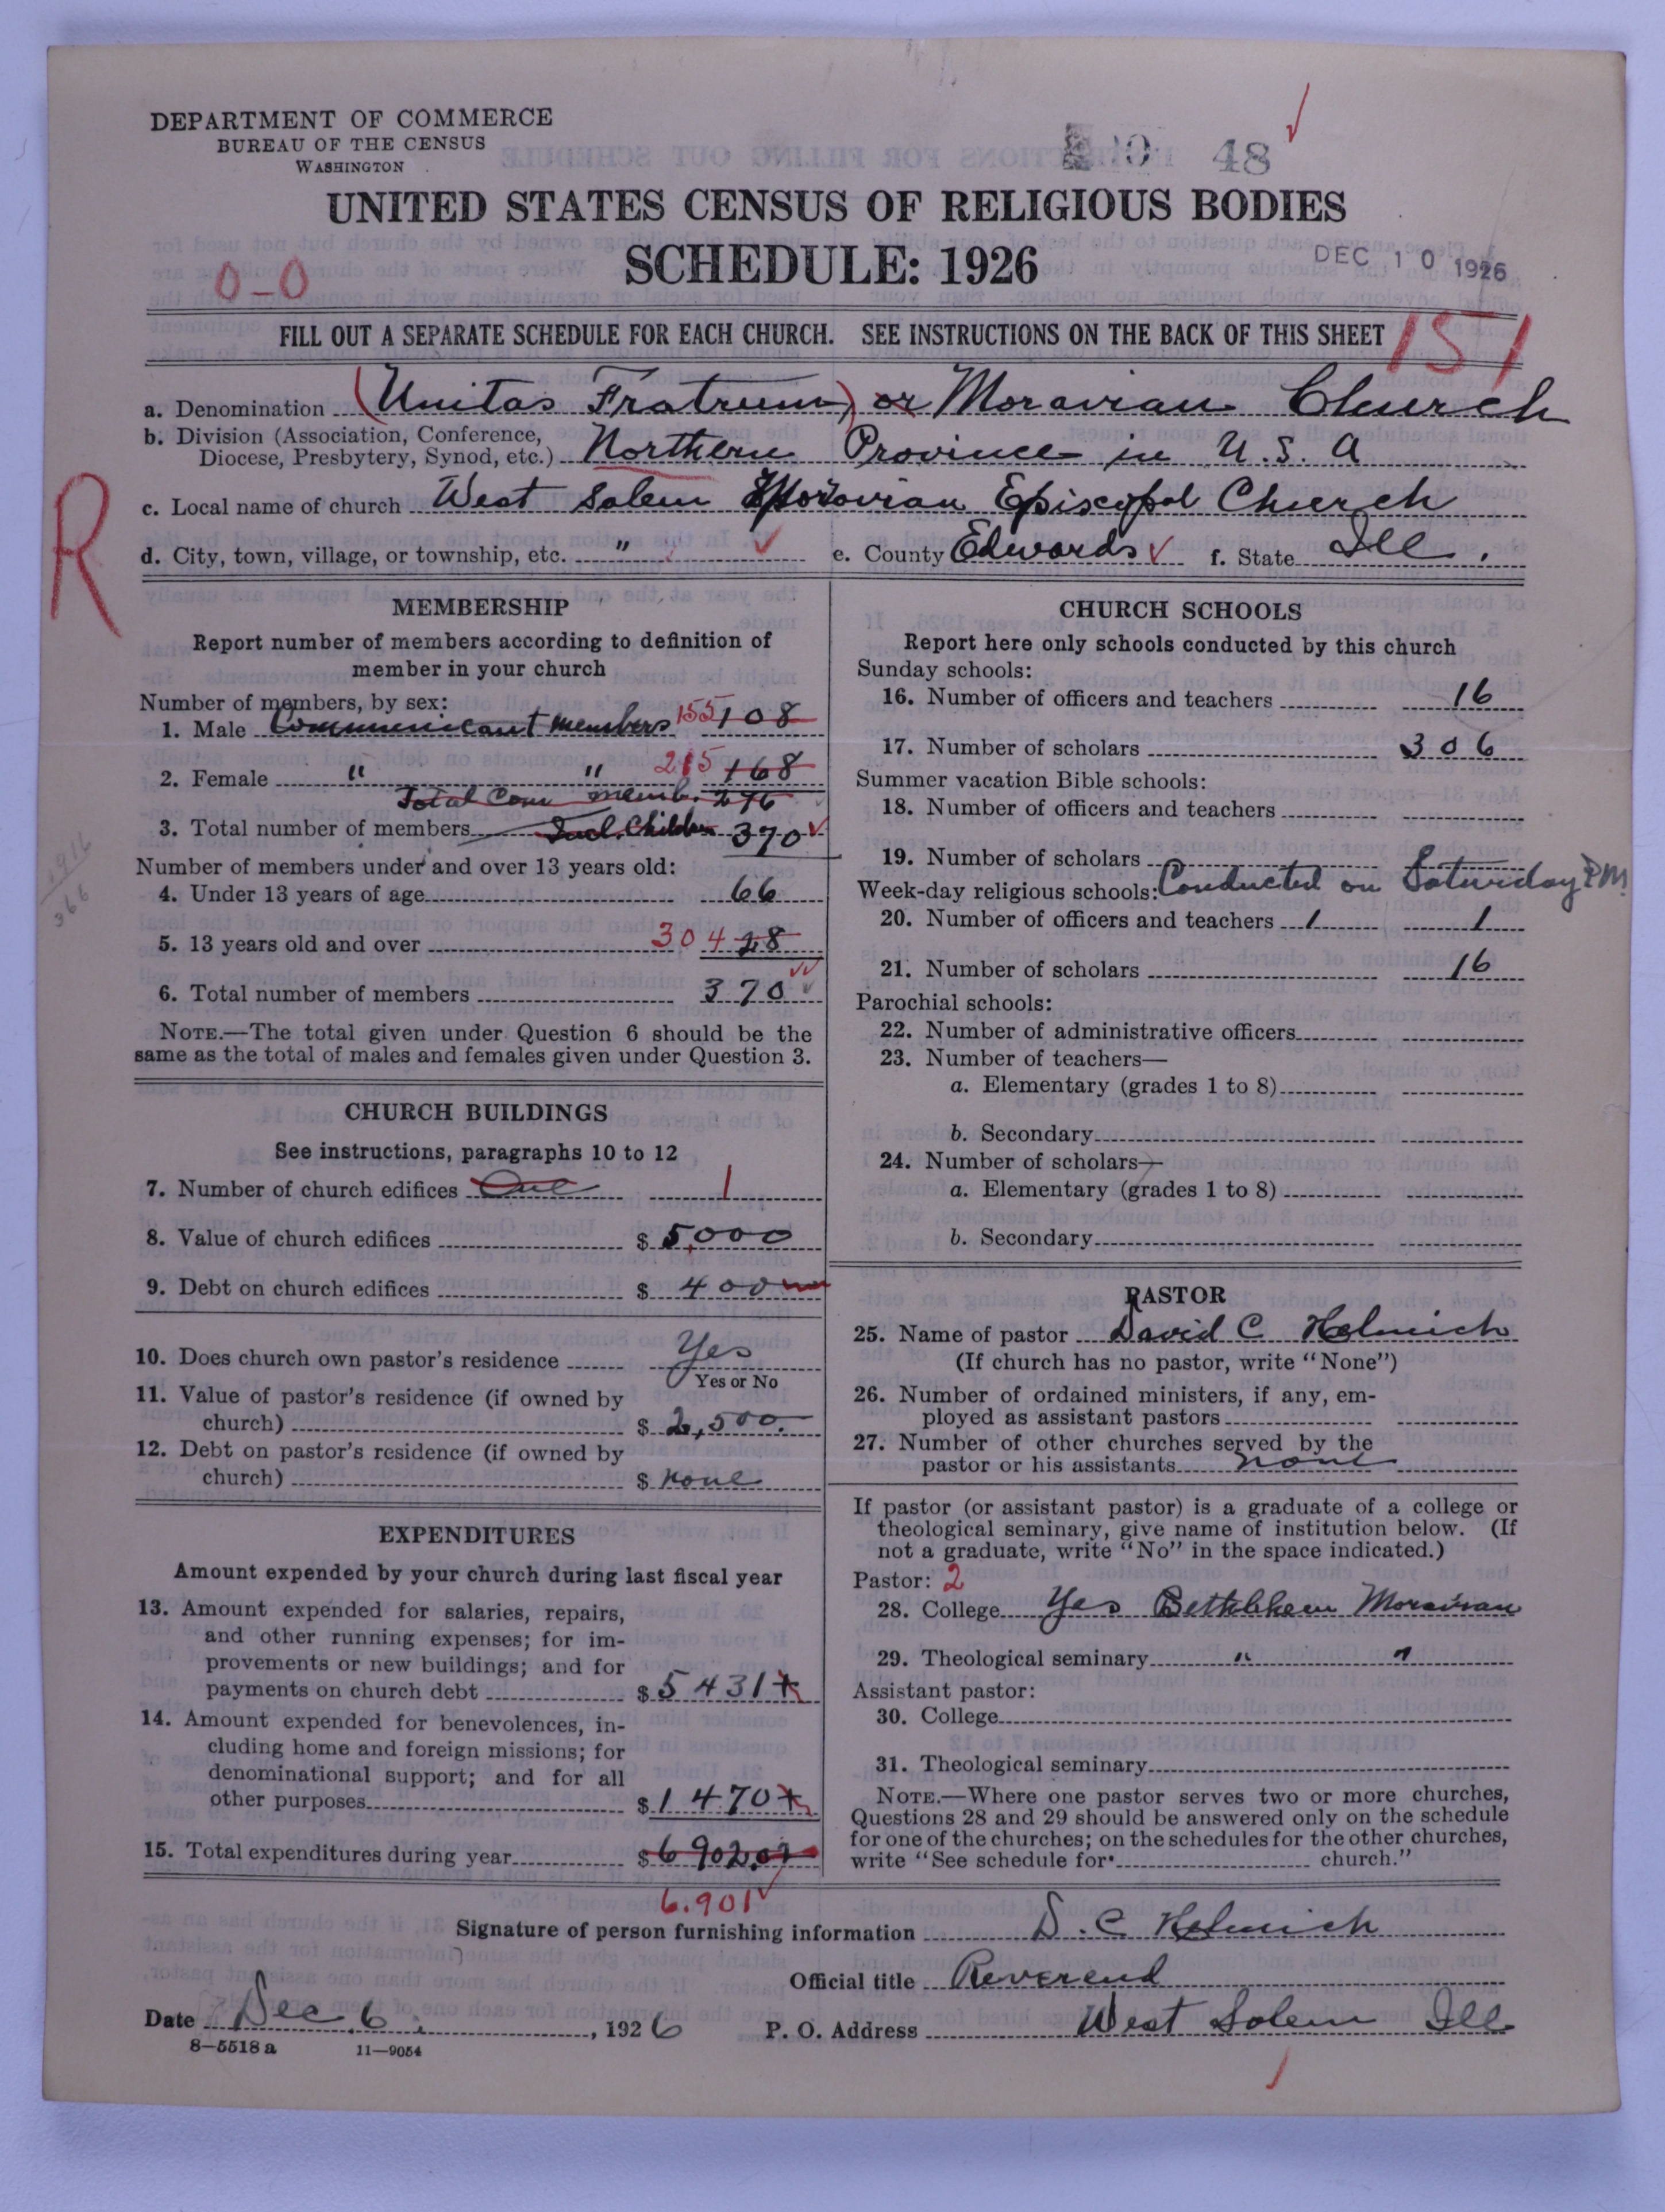 DEPARTMENT OF COMMERCE
BUREAU OF THE CENSUS
WASHINGTON
48
UNITED STATES CENSUS OF RELIGIOUS BODIES
SCHEDULE: 1926
DEC 10 1926
0-0
FILL OUT A SEPARATE SCHEDULE FOR EACH CHURCH. SEE INSTRUCTIONS ON THE BACK OF THIS SHEET
151
a. Denomination (Unitas Fratrum) or Moravian Church
b. Division (Association, Conference, Diocese, Presbytery, Synod, etc.) Northern Province in U.S.A
R
c. Local name of church West Salem Moravian Episcopal Church
d. City, town, village, or township, etc. " e. County Edwards f. State Ill.
MEMBERSHIP
Report number of members according to definition of
member in your church
Number of members, by sex:
1. Male Communicant members 155 108
2. Female " " 215 168
Total Com memb. 276
3. Total number of members Incl. Children 370
Number of members under and over 13 years old:
4. Under 13 years of age 66
5. 13 years old and over 304 28
6. Total number of members 370
NOTE.—The total given under Question 6 should be the
same as the total of males and females given under Question 3.
1916
366
CHURCH BUILDINGS
See instructions, paragraphs 10 to 12
7. Number of church edifices One 1
8. Value of church edifices $ 5,000
9. Debt on church edifices $ 400
10. Does church own pastor's residence Yes
Yes or No
11. Value of pastor's residence (if owned by
church) $ 2,500.
12. Debt on pastor's residence (if owned by
church) $ none
EXPENDITURES
Amount expended by your church during last fiscal year
13. Amount expended for salaries, repairs,
and other running expenses; for im-
provements or new buildings; and for
payments on church debt $ 5431
14. Amount expended for benevolences, in-
cluding home and foreign missions; for
denominational support; and for all
other purposes $ 1470
15. Total expenditures during year $ 6902.02
6.901
CHURCH SCHOOLS
Report here only schools conducted by this church
Sunday schools:
16. Number of officers and teachers 16
17. Number of scholars 306
Summer vacation Bible schools:
18. Number of officers and teachers
19. Number of scholars
Week-day religious schools: Conducted on Saturday PM
20. Number of officers and teachers 1 1
21. Number of scholars 16
Parochial schools:
22. Number of administrative officers
23. Number of teachers—
a. Elementary (grades 1 to 8)
b. Secondary
24. Number of scholars—
a. Elementary (grades 1 to 8)
b. Secondary
PASTOR
25. Name of pastor David C Helmich
(If church has no pastor, write "None")
26. Number of ordained ministers, if any, em-
ployed as assistant pastors
27. Number of other churches served by the
pastor or his assistants none
If pastor (or assistant pastor) is a graduate of a college or
theological seminary, give name of institution below. (If
not a graduate, write "No" in the space indicated.)
Pastor: 2
28. College Yes Bethlehem Moravian
29. Theological seminary " "
Assistant pastor:
30. College
31. Theological seminary
NOTE.—Where one pastor serves two or more churches,
Questions 28 and 29 should be answered only on the schedule
for one of the churches; on the schedules for the other churches,
write "See schedule for church."
Signature of person furnishing information D. C. Helmich
Official title Reverend
Date Dec. 6, 1926 P. O. Address West Salem Ill
8—5518 a 11—9054